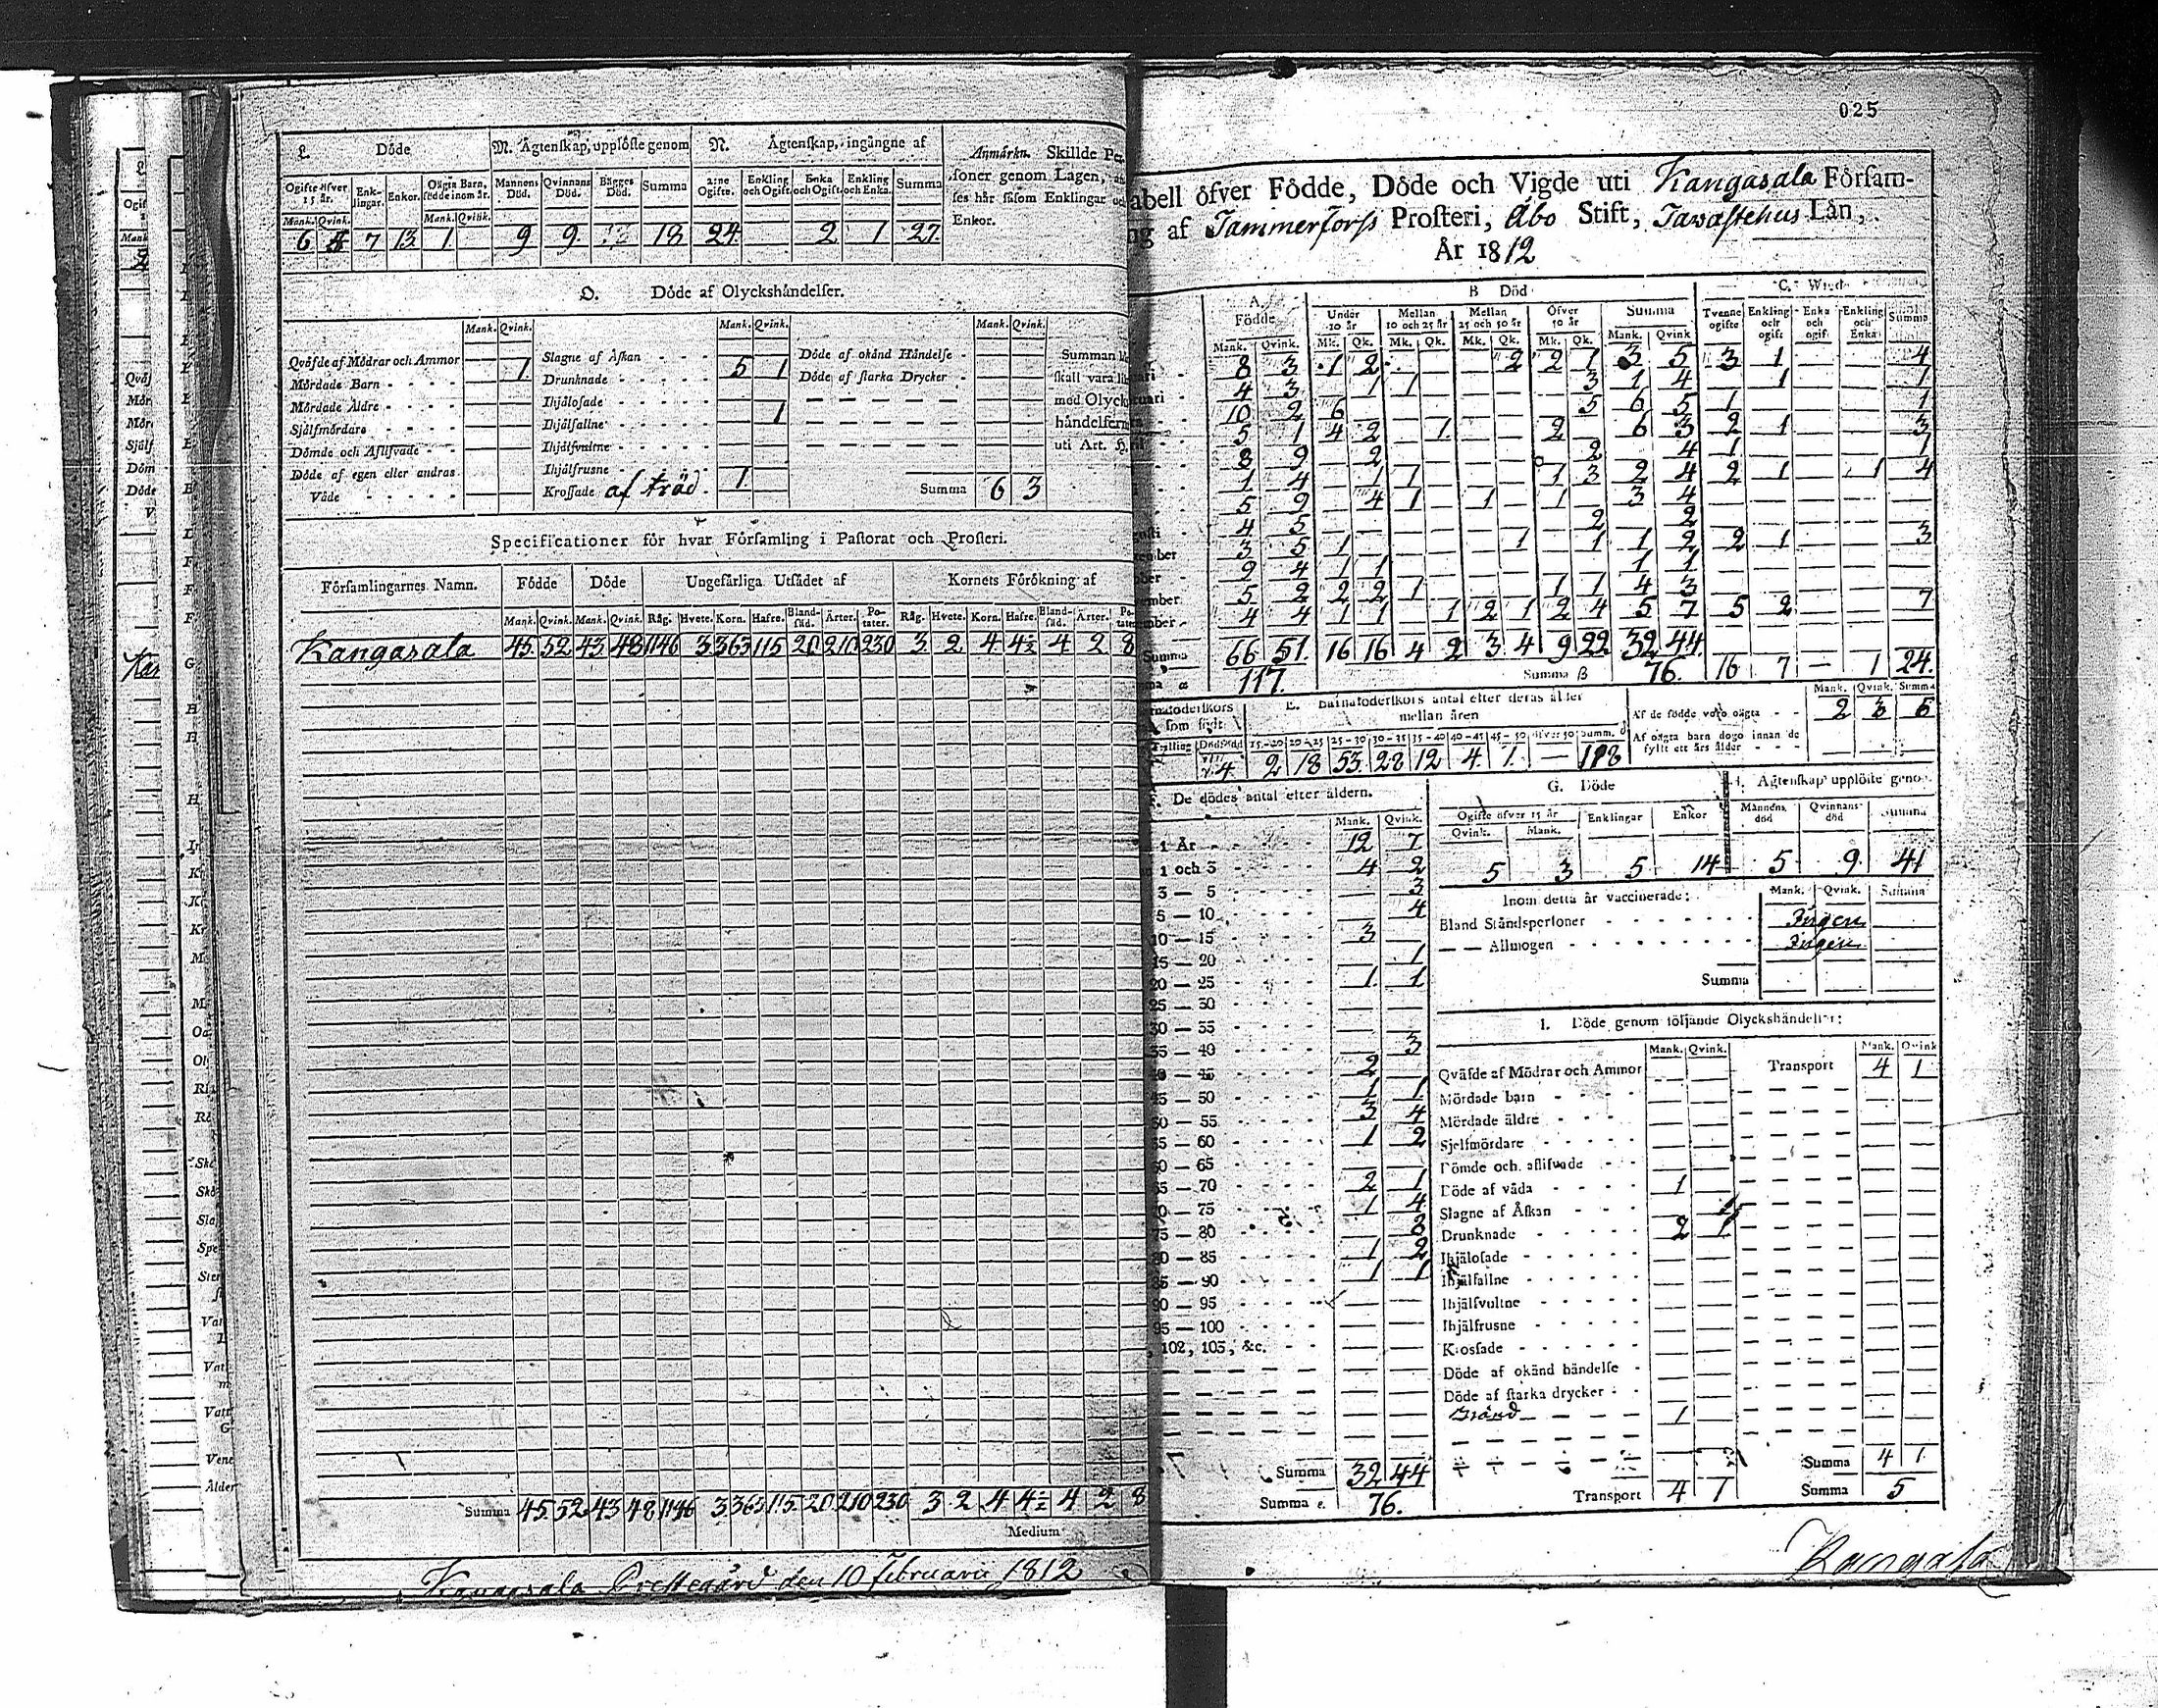 025
L. Döde
M. Ägtenskap, upplöste genom
N. Ägtenskap, ingångne af
Anmärkn. Skillde Per-
soner genom Lagen,
ses här såsom Enklingar
Enkor.
Ogifte öfver 15 år. Enklingar. Enkor. Oägta Barn, födde inom år. Mannens Död. Qvinnans Död. Bägges Död. Summa 2:ne Ogifte. Enkling och Ogift. Enka och Ogift. Enkling och Enka. Summa
Mank. Qvink. Mank. Qvink.
6 5 7 13 1 9 9 18 24 2 1 27.
O. Döde af Olyckshändelser.
Mank. Qvink. Mank. Qvink. Mank. Qvink.
Qväfde af Mödrar och Ammor 1 Slagne af Åskan Döde af okänd Händelse
Mördade Barn Drunknade 5 1 Döde af starka Drycker
Mördade Äldre Ihjälosade
Sjelfmördare Ihjälfallne 1
Dömde och Aflifvade Ihjälsvultne
Döde af egen eller andras Ihjälfrusne
Våde Krossade af träd. 1 Summa 6 3
Summan
skall vara
med Olycks
händelser
uti Art.
Specificationer för hvar Församling i Pastorat och Prosteri.
Församlingarnes Namn. Födde Döde Ungefärliga Utsädet af Kornets Förökning af
Mank. Qvink. Mank. Qvink. Råg. Hvete. Korn. Hafre. Bland-säd. Ärter. Po-tater. Råg. Hvete. Korn. Hafre. Bland-säd. Ärter.
Kangasala 45 52 43 48 1146 3 363 115 20 210 230 3 2 4 4½ 4 2 8
Summa 45 52 43 48 1146 3 363 115 20 210 230 3 2 4 4½ 4 2 8
Medium
Kangasala Prestegård den 10 Februarii 1812
abell öfver Födde, Döde och Vigde uti Kangasala Församl-
ng af Tammerforss Prosteri, Åbo Stift, Tavastehus Län,
År 1812
A. Födde B Död C.
Under 10 år Mellan 10 och 25 år Mellan 25 och 50 år Öfver 50 år Summa Tvenne ogifte Enkling och ogift Enka och ogift Enkling och Enka Summa
Mank. Qvink. Mk. Qk. Mk. Qk. Mk. Qk. Mk. Qk. Mank. Qvink
8 3 1 2 2 2 1 3 5 3 1 4
4 3 1 1 3 1 4 1 1
10 2 6 5 6 5 1 1
5 1 4 2 1 2 6 3 2 1 3
8 9 2 2 4 1 1
1 4 1 1 1 3 2 4 2 1 1 4
5 9 4 1 1 1 3 4
4 5 2 2
3 5 1 1 1 1 2 2 1 3
9 4 1 1 1 1
5 2 2 2 1 1 1 4 3
4 4 1 1 1 2 1 2 4 5 7 5 2 7
Summa 66 51. 16 16 4 2 3 4 9 22 32 44.
117. Summa B 76. 16 7 — 1 24.
E. Barnaföderskors antal efter deras ålder
mellan åren
15-20 20-25 25-30 30-35 35-40 40-45 45-50 öfver 50 Summ.
4 2 18 53 28 12 4 1 — 118
Mank. Qvink. Summa
Af de födde voro oägta 2 3 5
Af oägta barn dogo innan de
fyllt ett års ålder
F. De dödes antal efter åldern.
Mank. Qvink.
1 År 12 7
1 och 3 4 2
3 — 5 3
5 — 10 4
10 — 15 3
15 — 20 1
20 — 25 1 1
25 — 30
30 — 35
35 — 40 3
40 — 45 2
45 — 50 1 1
50 — 55 3 4
55 — 60 1 2
60 — 65
65 — 70 2 1
70 — 75 1 4
75 — 80 8
80 — 85 1 2
85 — 90 1 1
90 — 95
95 — 100
102, 103, &c.
Summa 32 44
76.
G. Döde
Ogifte öfver 15 år Enklingar Enkor
Qvink. Mank.
5 3 5 14
H. Ägtenskap upplöste genom
Mannens död Qvinnans död Summa
5 9
Inom detta år vaccinerade: Mank. Qvink. Summa
Bland Ståndspersoner Ingen
— — Allmogen Ingen
Summa
I. Döde genom följande Olyckshändelser:
Mank. Qvink. Mank. Qvink
Qväfde af Mödrar och Ammor Transport 4 1
Mördade barn
Mördade äldre
Sjelfmördare
Dömde och aflifvade
Döde af våda 1
Slagne af Åskan
Drunknade 2 1
Ihjälosade
Ihjälfallne
Ihjälsvultne
Ihjälfrusne
Krossade
Döde af okänd händelse
Döde af starka drycker
Bränd 1
Summa 4 1
Transport 4 1 Summa 5
Kangasala